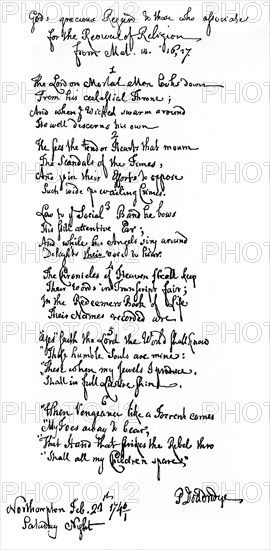 God's gracious Regard to those who associate
for the Revival of Religion
from Mal. iii. 16, 17
1
The Lord on Mortal Men looks down
From his celestial Throne;
And when ye Wicked swarm around
He well discerns his own
2
He sees the tender Hearts that mourn
The Scandals of the Times,
And join their Efforts to oppose
Such wide prevailing Crimes.
3
Low to ye Social Band he bows
His still attentive Ear;
And while his Angels sing around
Delights their voice to hear.
The Chronicles of Heaven shall keep
Their Words in Transcript fair;
In the Redeemer's Book of Life
Their Names recorded are
5
"Yes saith the Lord the World shall
"These humble Souls are mine:
"These when my Jewels I produce
"Shall in full Lustre shine
6
"When Vengeance like a Torrent comes
"My Foes away to bear,
"That Hand that strikes the Rebel thro
"Shall all my Children spare."
P Doddridge
Northampton Feb. 21st 174 0/1
Saturday Night